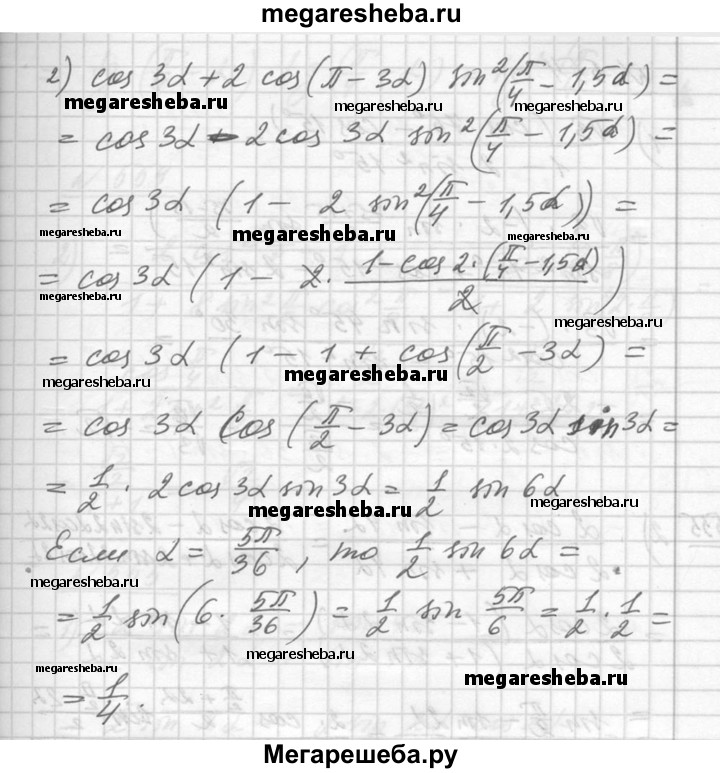 megaresheba.ru
2) cos 3α + 2 cos(π − 3α) sin²(π/4 − 1,5α) =
megaresheba.ru megaresheba.ru megaresheba.ru
= cos 3α − 2 cos 3α sin²(π/4 − 1,5α) =
= cos 3α (1 − 2 sin²(π/4 − 1,5α)) =
megaresheba.ru megaresheba.ru megaresheba.ru
= cos 3α (1 − 2 · (1 − cos 2 · (π/4 − 1,5α))/2)
megaresheba.ru megaresheba.ru
= cos 3α (1 − 1 + cos(π/2 − 3α) =
megaresheba.ru megaresheba.ru megaresheba.ru
= cos 3α cos (π/2 − 3α) = cos 3α sin 3α =
= 1/2 · 2 cos 3α sin 3α = 1/2 sin 6α
megaresheba.ru megaresheba.ru
Если α = 5π/36, то 1/2 sin 6α =
megaresheba.ru megaresheba.ru
= 1/2 sin(6 · 5π/36) = 1/2 sin 5π/6 = 1/2 · 1/2 =
megaresheba.ru megaresheba.ru
= 1/4.
megaresheba.ru
Мегарешеба.ру